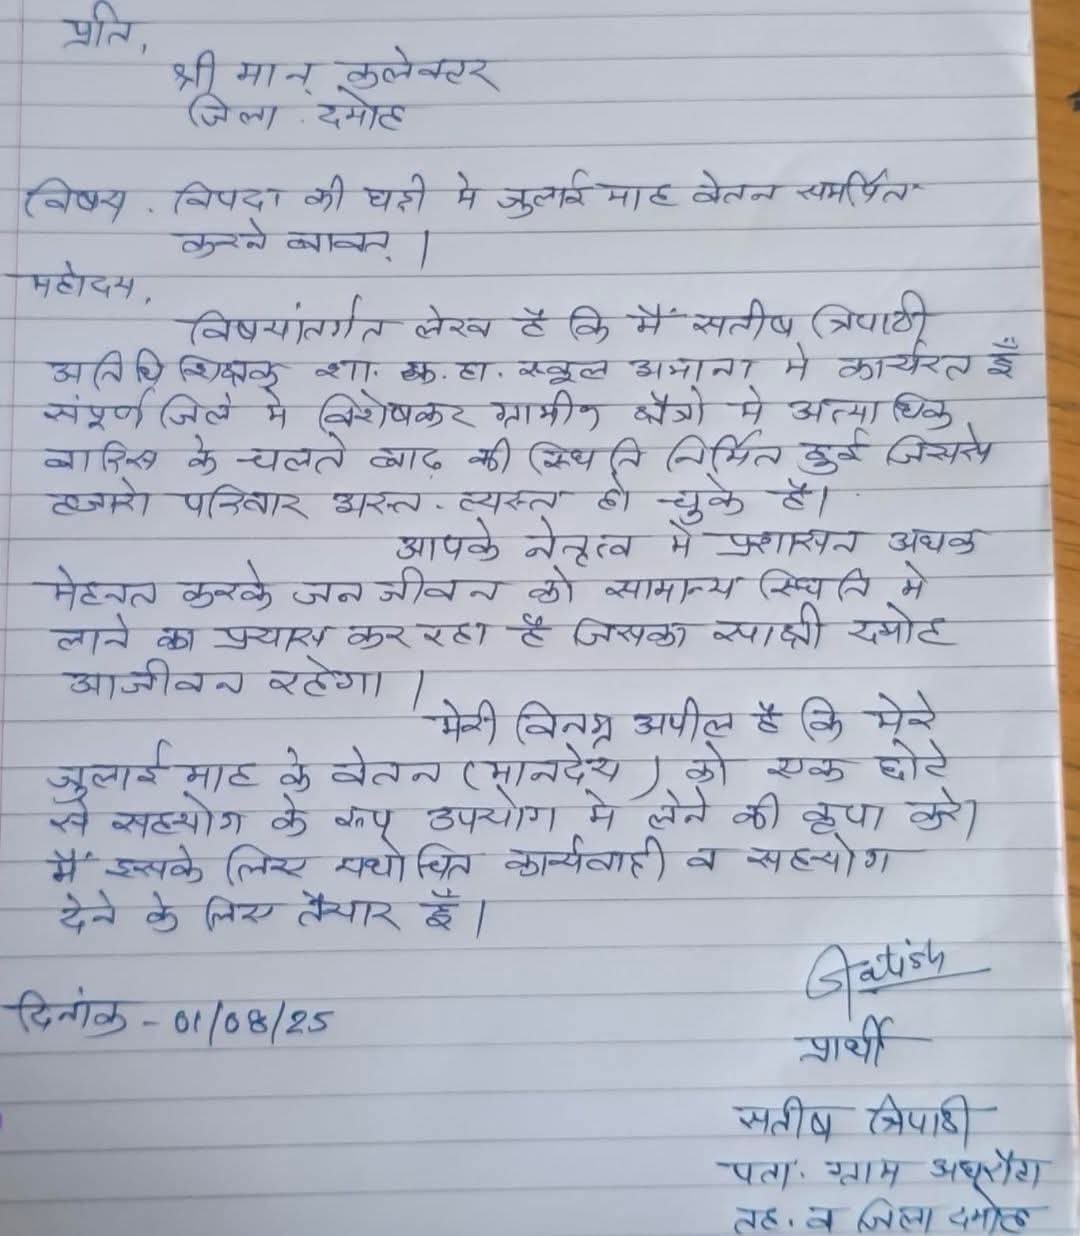 प्रति,
श्री मान् कलेक्टर
जिला . दमोह
विषय . विपदा की घड़ी मे जुलाई माह वेतन समर्पित
करने बावत् ।
महोदय,
विषयांतर्गत लेख है कि मैं सतीष त्रिपाठी
अतिथि शिक्षक शा. क. हा. स्कूल अभाना मे कार्यरत हूँ
संपूर्ण जिले मे विशेषकर ग्रामीन क्षेत्रो मे अत्याधिक
बारिस के चलते बाढ़ की स्थिति निर्मित हुई जिससे
हजारो परिवार अस्त-व्यस्त हो चुके है।
आपके नेतृत्व में प्रशासन अथक
मेहनत करके जन जीवन को सामान्य स्थिति मे
लाने का प्रयास कर रहा है जिसका साक्षी दमोह
आजीवन रहेगा ।
मेरी विनम्र अपील है कि मेरे
जुलाई माह के वेतन (मानदेय) को एक छोटे
से सहयोग के रूप उपयोग मे लेने की कृपा करे।
मैं इसके लिए यथोचित कार्यवाही व सहयोग
देने के लिए तैयार हूँ।
Satish
दिनांक - 01/08/25
प्रार्थी
सतीष त्रिपाठी
पता. ग्राम
तह. व जिला दमोह